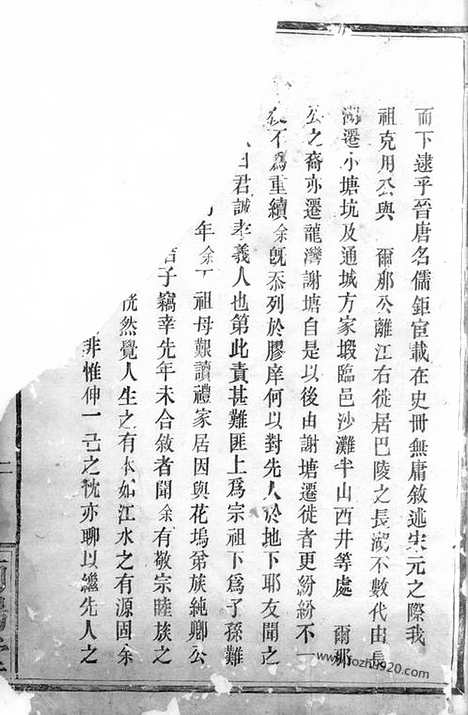 而下逮乎晉唐名儒鉅宦載在史冊無庸敘述宋元之際我
祖克用公與 爾那公離江右徙居巴陵之長湖不數代由長
湖遷小塘坑及通城方家塅臨邑沙灘半山西井等處 爾那
公之裔亦遷龍灣謝塘自是以後由謝塘遷徙者更紛紛不一
不為重續余旣忝列於膠庠何以對先人於地下耶友聞之
曰君誠孝義人也第此責甚難匪上爲宗祖下爲子孫難
年余丁祖母艱讀禮家居因與花塢第族純卿公
子竊幸先年未合敘者聞余有敬宗睦族之
恍然覺人生之有本如江水之有源固余
非惟伸一己之忱亦聊以繼先人之
二
www.jiozhu920.com